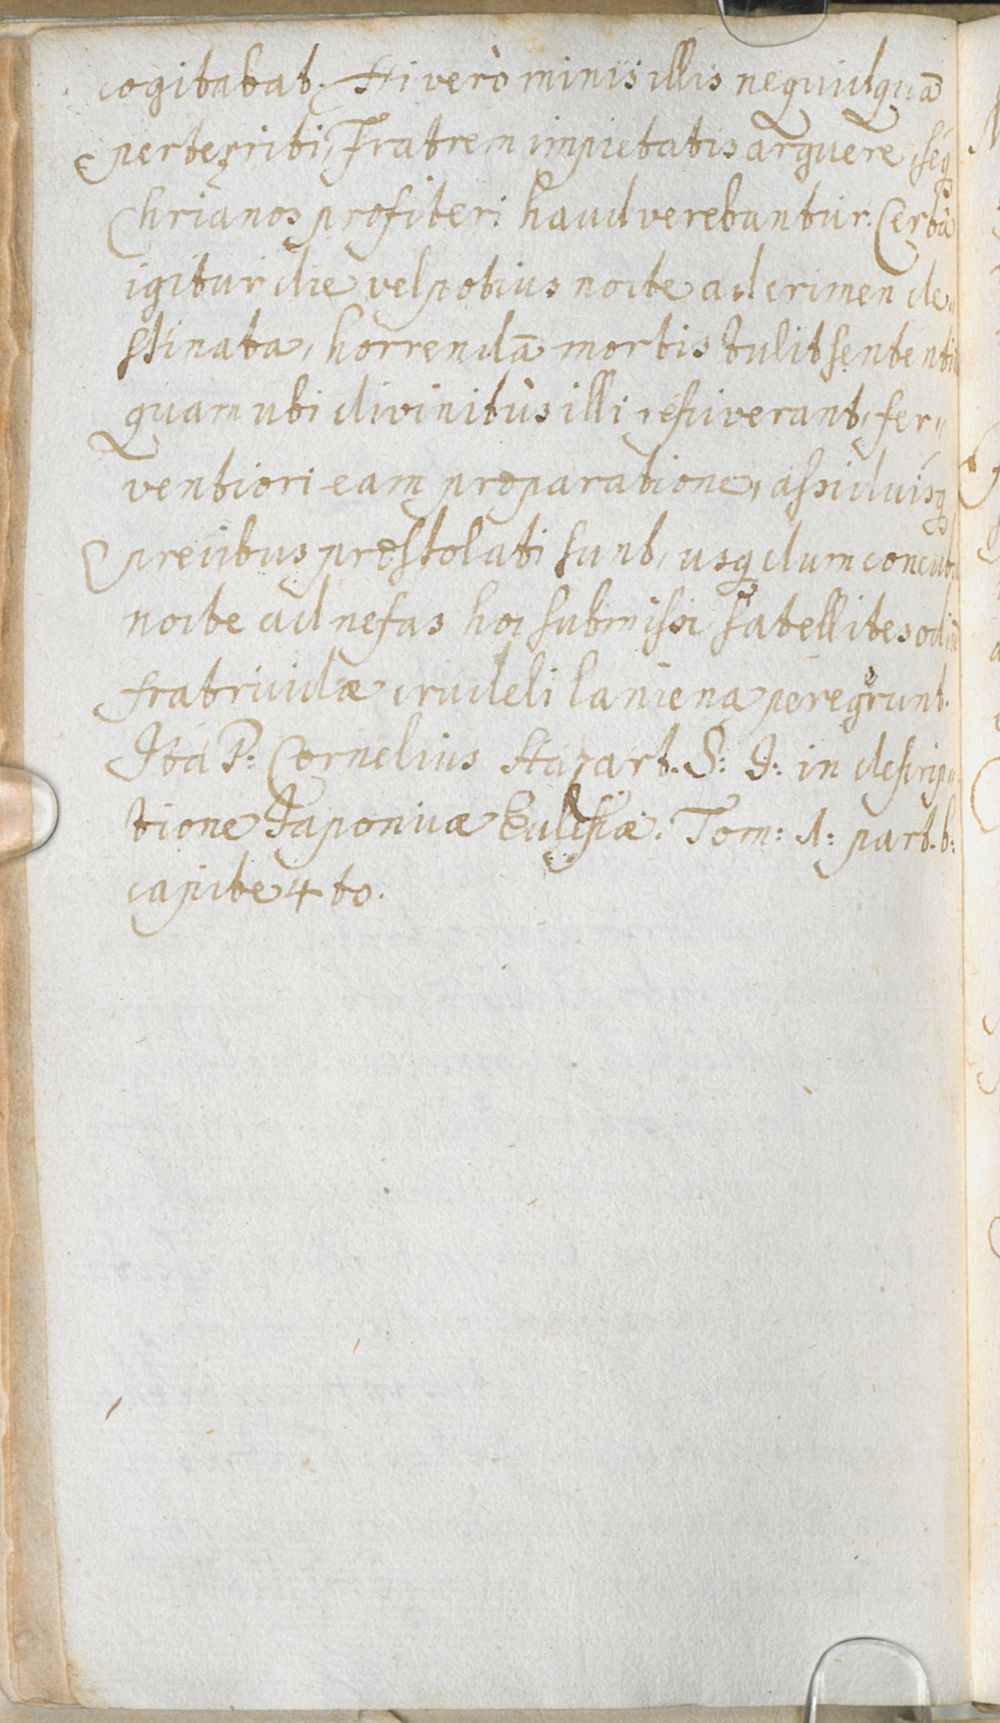 cogitabat. Hi verò minis illis nequidquā
perterriti, Fratrem impietatis arguere, seq
Chrianos profiteri haud verebantur. Certâ
igitur die vel potius nocte ad crimen de-
stinata, horrendā mortis tulit sententiā
quam ubi divinitùs illi resciverant, fer-
ventiori eam præparatione, assiduisq
precibus præstolati sunt, usq dum concubiâ
nocte ad nefas hoc submissi satellites odiū
fratricidæ crudeli laniena peregerunt.
Ita P: Cornelius Hazart. S: J: in descrip-
tione Japonicæ Eccles̄iæ. Tom: 1: part. 6:
capite 4to.